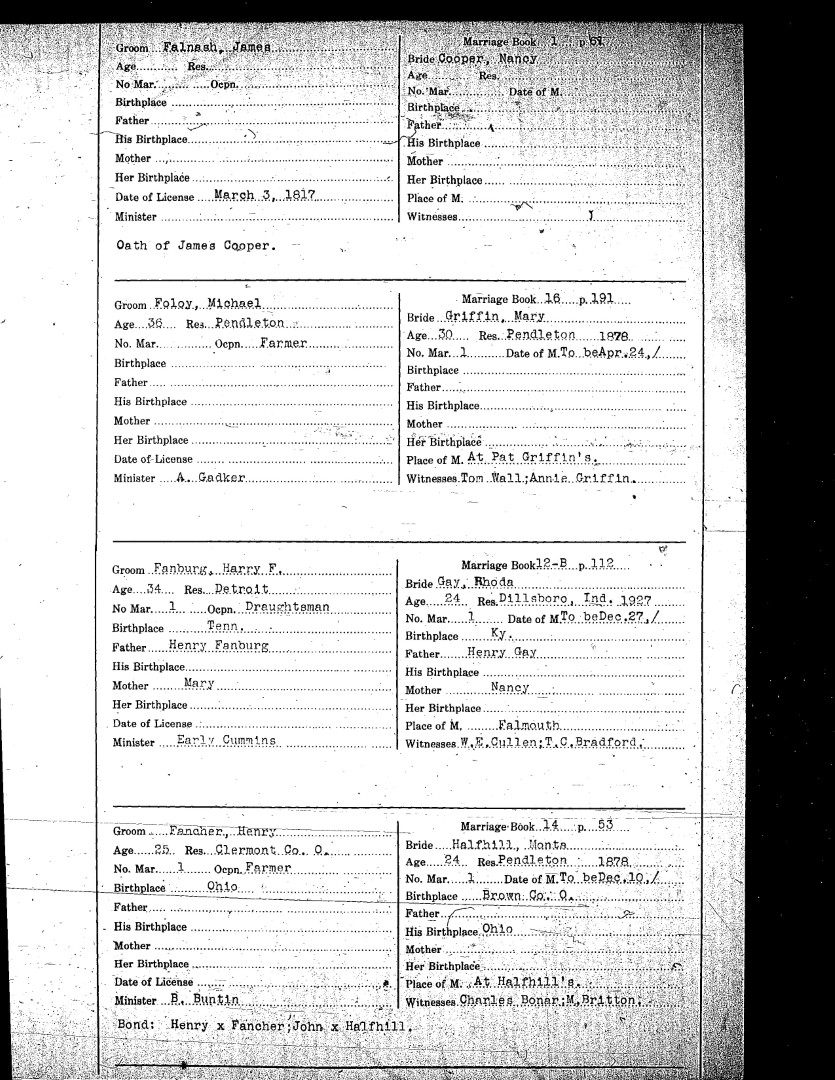 Groom Falnash, James
Age Res.
No Mar. Ocpn.
Birthplace
Father
His Birthplace
Mother
Her Birthplace
Date of License March 3, 1817
Minister
Marriage Book 1 p.
Bride Cooper, Nancy
Age Res.
No. Mar. Date of M.
Birthplace
Father
His Birthplace
Mother
Her Birthplace
Place of M.
Witnesses
Oath of James Cooper.
Groom Foley, Michael
Age 36 Res. Pendleton
No. Mar. Ocpn. Farmer
Birthplace
Father
His Birthplace
Mother
Her Birthplace
Date of License
Minister A. Gadker
Marriage Book 16 p. 191
Bride Griffin, Mary
Age 30 Res. Pendleton 1878
No. Mar. 1 Date of M. To be Apr. 24,/
Birthplace
Father
His Birthplace
Mother
Her Birthplace
Place of M. At Pat Griffin's.
Witnesses Tom Wall;Annie Griffin.
Groom Fanburg, Harry F.
Age 34 Res. Detroit
No Mar. 1 Ocpn. Draughtsman
Birthplace Tenn.
Father Henry Fanburg
His Birthplace
Mother Mary
Her Birthplace
Date of License
Minister Early Cummins
Marriage Book 12-B p. 112
Bride Gay, Rhoda
Age 24 Res. Dillsboro, Ind. 1927
No. Mar. 1 Date of M. To be Dec. 27,/
Birthplace Ky.
Father Henry Gay
His Birthplace
Mother Nancy
Her Birthplace
Place of M. Falmouth
Witnesses W.E.Cullen;T.C.Bradford.
Groom Fancher, Henry
Age 25 Res. Clermont Co. O.
No. Mar. 1 Ocpn. Farmer
Birthplace Ohio
Father
His Birthplace
Mother
Her Birthplace
Date of License
Minister B. Buntin
Marriage Book 14 p. 53
Bride Halfhill, Monta
Age 24 Res. Pendleton 1878
No. Mar. 1 Date of M. To be Dec. 10,/
Birthplace Brown Co. O.
Father
His Birthplace Ohio
Mother
Her Birthplace
Place of M. At Halfhill's.
Witnesses Charles Bonar;M.Britton.
Bond: Henry x Fancher;John x Halfhill.